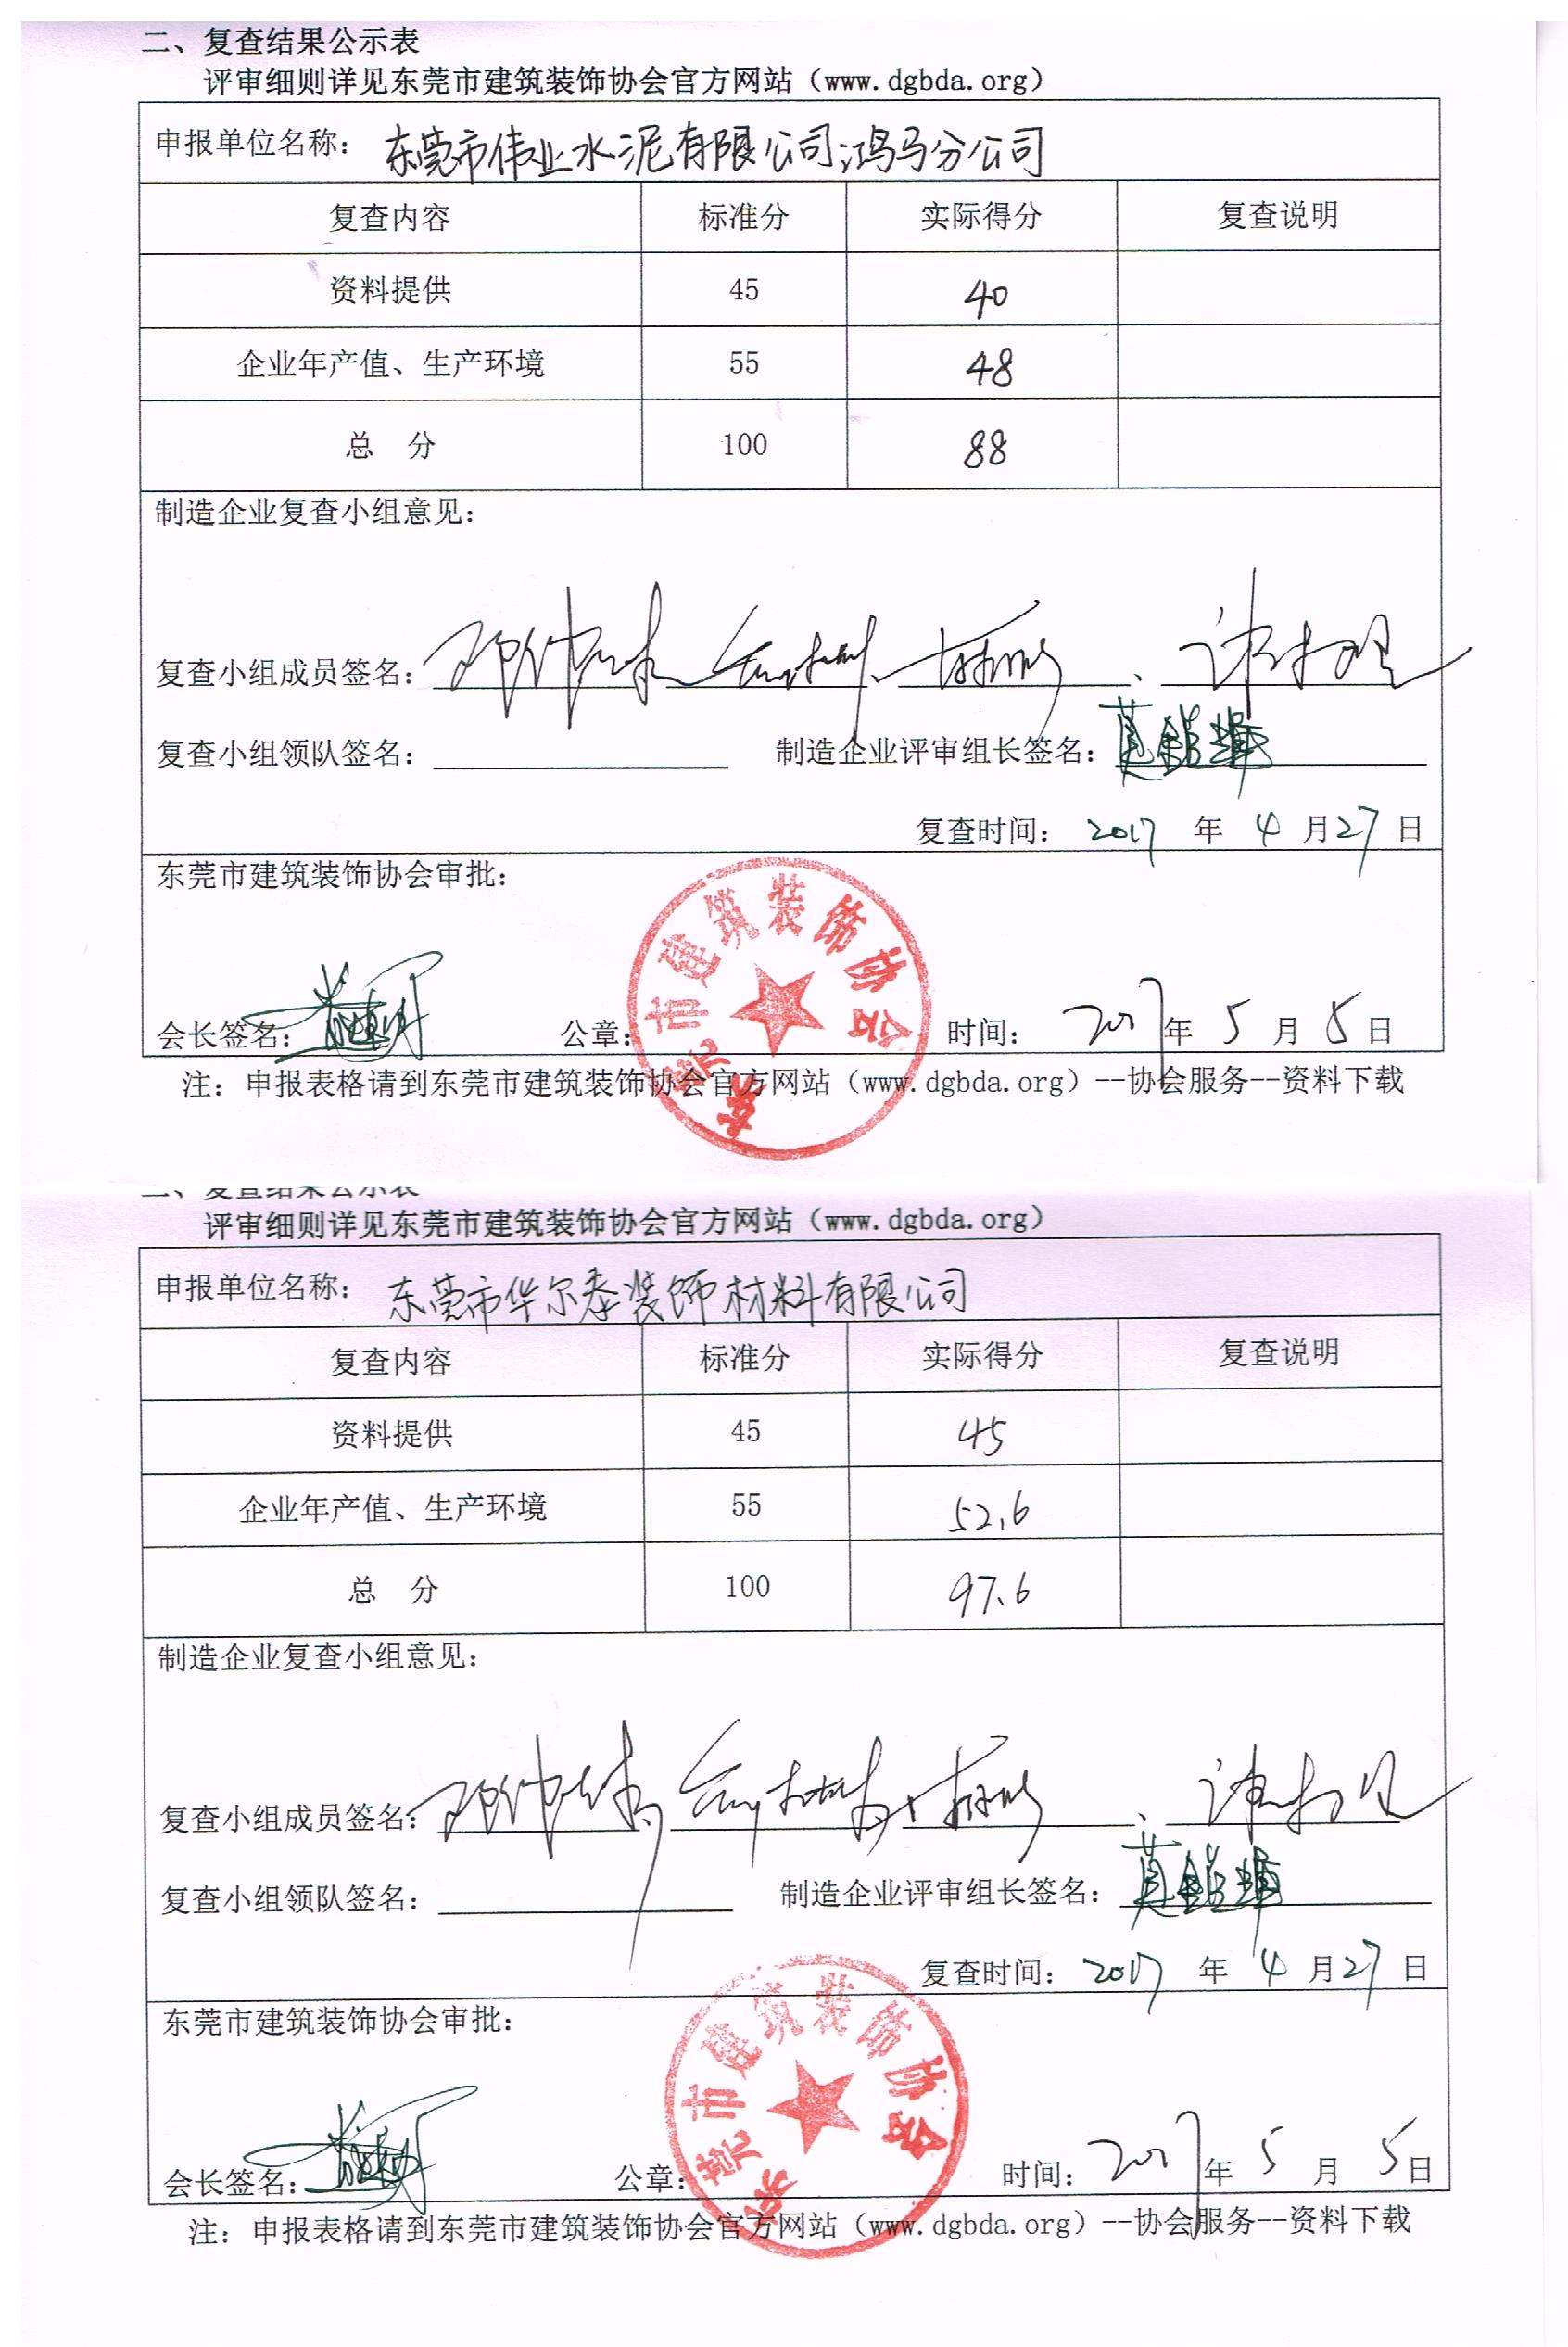 二、复查结果公示表
评审细则详见东莞市建筑装饰协会官方网站（www.dgbda.org）
申报单位名称： 东莞市伟业水泥有限公司鸿马分公司
复查内容 标准分 实际得分 复查说明
资料提供 45 40
企业年产值、生产环境 55 48
总 分 100 88
制造企业复查小组意见：
复查小组成员签名：
复查小组领队签名： 制造企业评审组长签名：
复查时间： 2017 年 4 月 27 日
东莞市建筑装饰协会审批：
东莞市建筑装饰协会
会长签名： 公章： 时间： 2017 年 5 月 5 日
注：申报表格请到东莞市建筑装饰协会官方网站（www.dgbda.org）--协会服务--资料下载
二、复查结果公示表
评审细则详见东莞市建筑装饰协会官方网站（www.dgbda.org）
申报单位名称： 东莞市华尔泰装饰材料有限公司
复查内容 标准分 实际得分 复查说明
资料提供 45 45
企业年产值、生产环境 55 52.6
总 分 100 97.6
制造企业复查小组意见：
复查小组成员签名：
复查小组领队签名： 制造企业评审组长签名：
复查时间： 2017 年 4 月 27 日
东莞市建筑装饰协会审批：
东莞市建筑装饰协会
会长签名： 公章： 时间： 2017 年 5 月 5 日
注：申报表格请到东莞市建筑装饰协会官方网站（www.dgbda.org）--协会服务--资料下载